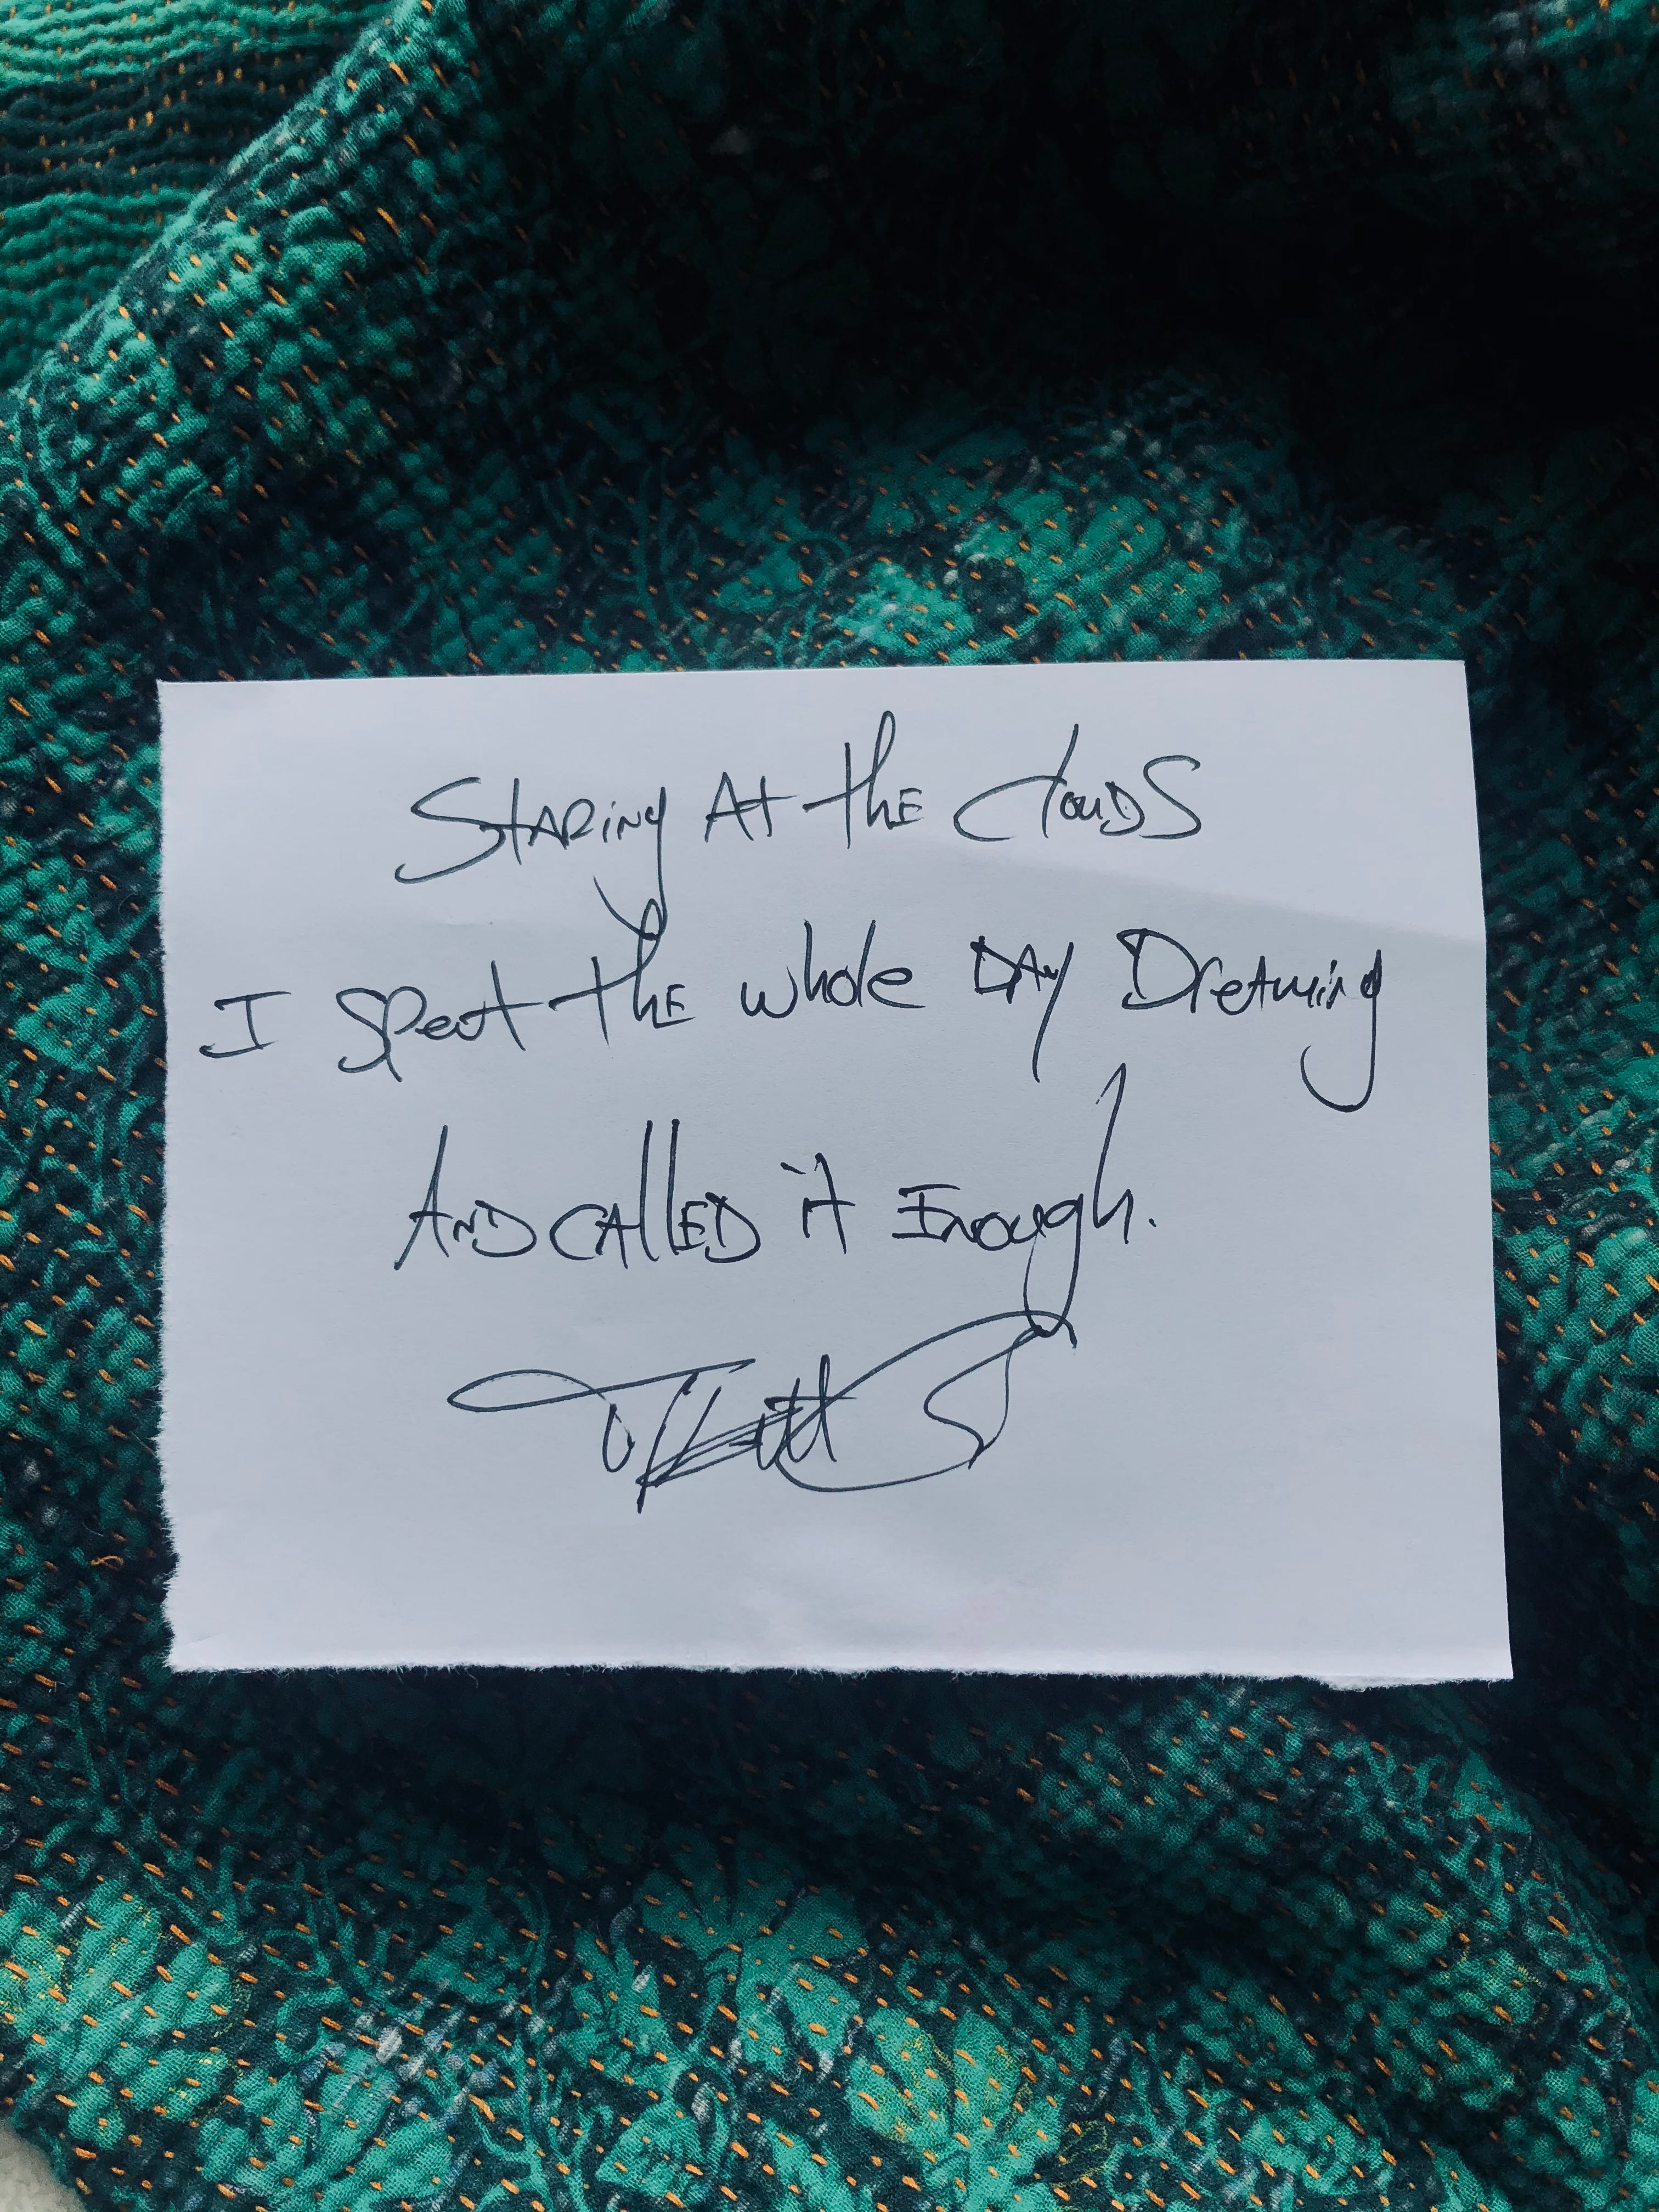 Staring At the Clouds
I Spent the whole Day Dreaming
And called it Enough.